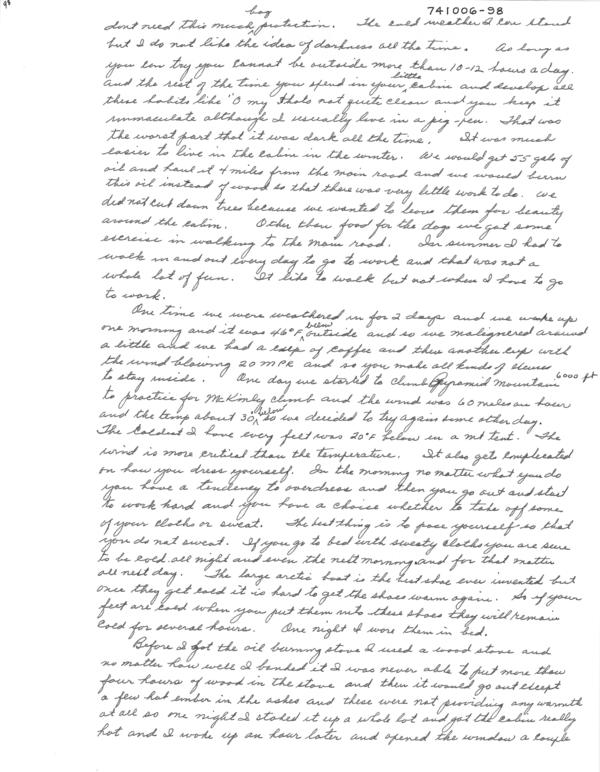 98
bag
741006-98
dont need this much protection. The cold weather I can stand
but I do not like the idea of darkness all the time. As long as
you can try you cannot be outside more than 10-12 hours a day.
and the rest of the time you spend in your little cabin and develop all
these habits like "O my thats not quite clean and you keep it
immaculate although I usually live in a pig-pen. That was
the worst part that it was dark all the time. It was much
easier to live in the cabin in the winter. We would get 55 gals of
oil and haul it 4 miles from the main road and we would burn
this oil instead of wood so that there was very little work to do. We
did not cut down trees because we wanted to leave them for beauty
around the cabin. Other than food for the dogs we got some
exercise in walking to the main road. In summer I had to
walk in and out every day to go to work and that was not a
whole lot of fun. It like to walk but not when I have to go
to work.
One time we were weathered in for 2 days and we woke up
one morning and it was 46°F below outside and so we malingnered around
a little and we had a cup of coffee and then another cup with
the wind blowing 20 MPR and so you make all kinds of
to stay inside. One day we started to climb Pyramid Mountain 6000 ft
to practice for McKinley climb and the wind was 60 miles an hour
and the temp about 30 below so we decided to try again some other day.
The coldest I have every felt was 20°F below in a mt tent. The
wind is more critical than the temperature. It also gets complecated
on how you dress yourself. In the morning no matter what you do
you have a tendency to overdress and then you go out and start
to work hard and you have a choice whether to take off some
of your cloths or sweat. The best thing is to pase yourself so that
you do not sweat. If you go to bed with sweaty cloths you are sure
to be cold all night and even the next morning and for that matter
all next day. The large arctic boot is the best shoe ever invented but
once they get cold it is hard to get the shoes warm again. So if your
feet are cold when you put them into these shoes they will remain
cold for several hours. One night I wore them in bed.
Before I got the oil burning stove I used a wood stove and
no matter how well I banked it I was never able to put more than
four hours of wood in the stove and then it would go out except
a few hot ember in the ashes and these were not providing any warmth
at all so one night I stoked it up a whole lot and got the cabin really
hot and I woke up an hour later and opened the window a couple